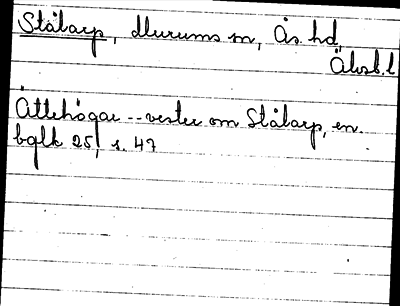 Stålarp, Murums sn, Ås hd
Älvsb. l
Ättehögar -- vester om Stålarp, en.
bglk 25, s. 47